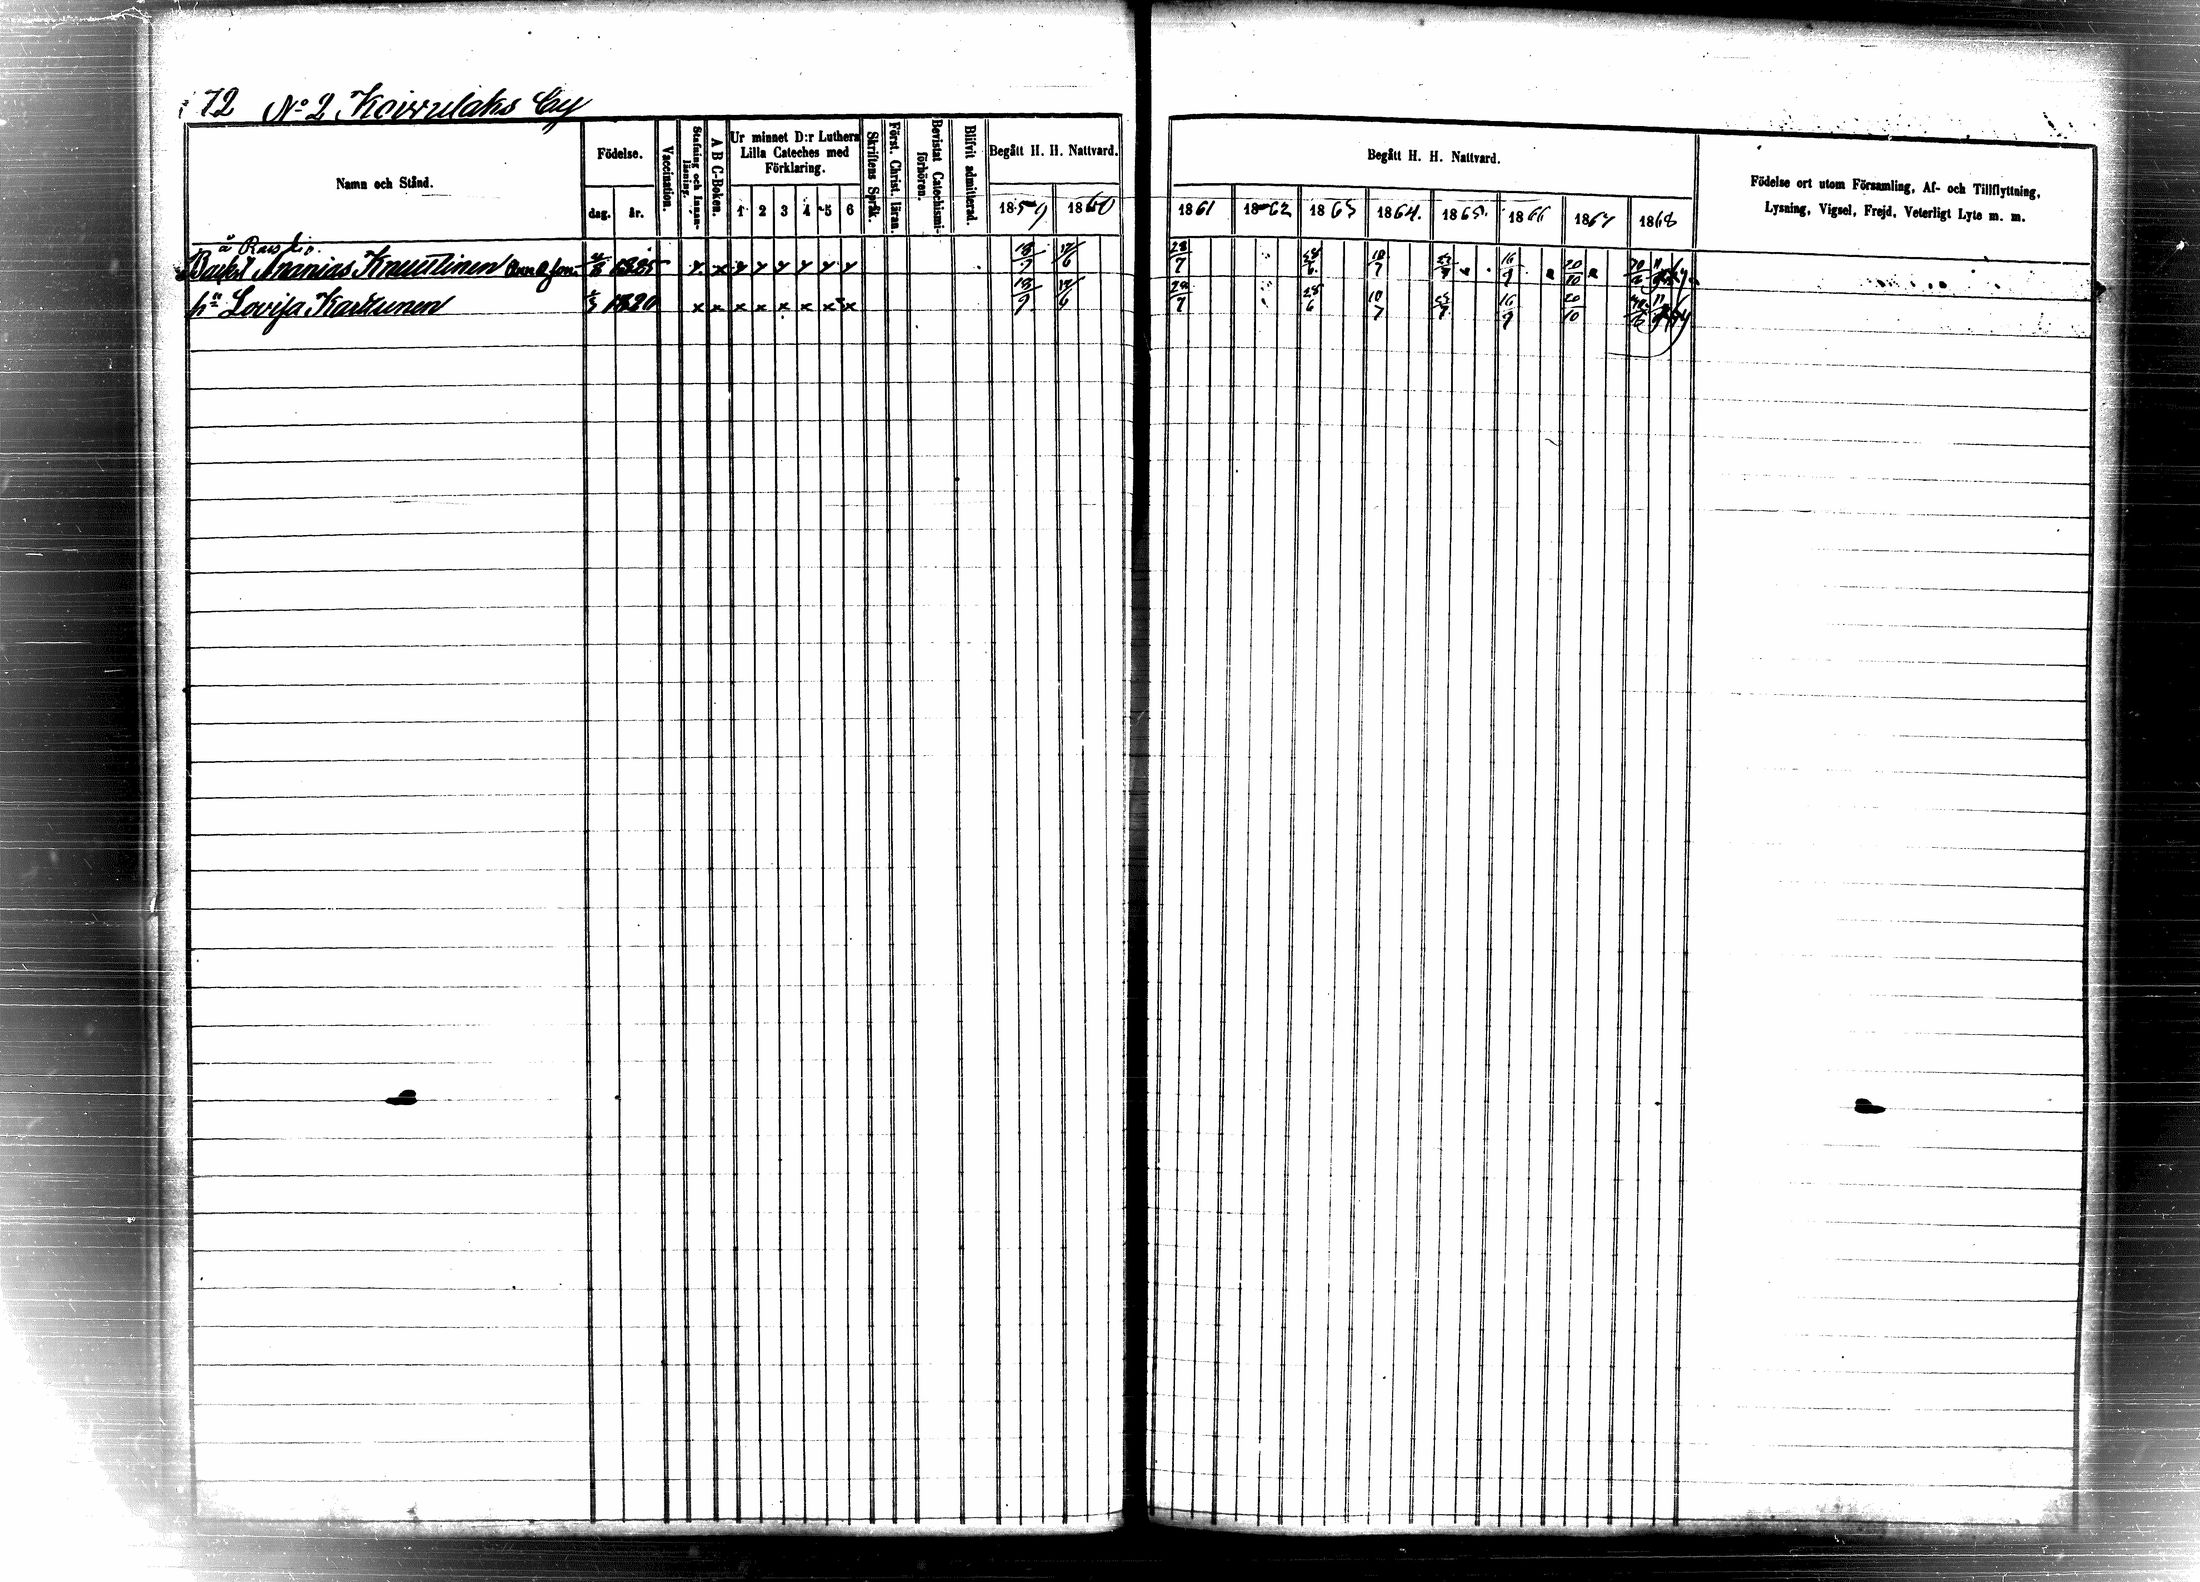 72 No 2 Koirulaks By
Namn och Stånd.
Födelse.
dag. år.
Vaccination.
Stafning och Innan-läsning.
A B C-Boken.
Ur minnet D:r Luthers Lilla Cateches med Förklaring.
1 2 3 4 5 6
Skriftens Språk.
Först. Christ. läran.
Bevistat Catechismi-förhören.
Blifvit admitterad.
Begått H. H. Nattvard.
1859 1860
Begått H. H. Nattvard.
1861 1862 1863 1864. 1865. 1866 1867 1868
Födelse ort utom Församling, Af- och Tillflyttning,
Lysning, Vigsel, Frejd, Veterligt Lyte m. m.
Ananias Knuutinen 1825 x x x x x x x x 18/9 17/6 28/7 28/6 10/7 23/7 16/9 20/10
hu Lovisa Karttunen 1820 x x x x x x x x 18/9 17/6 28/7 28/6 10/7 23/7 16/9 20/10